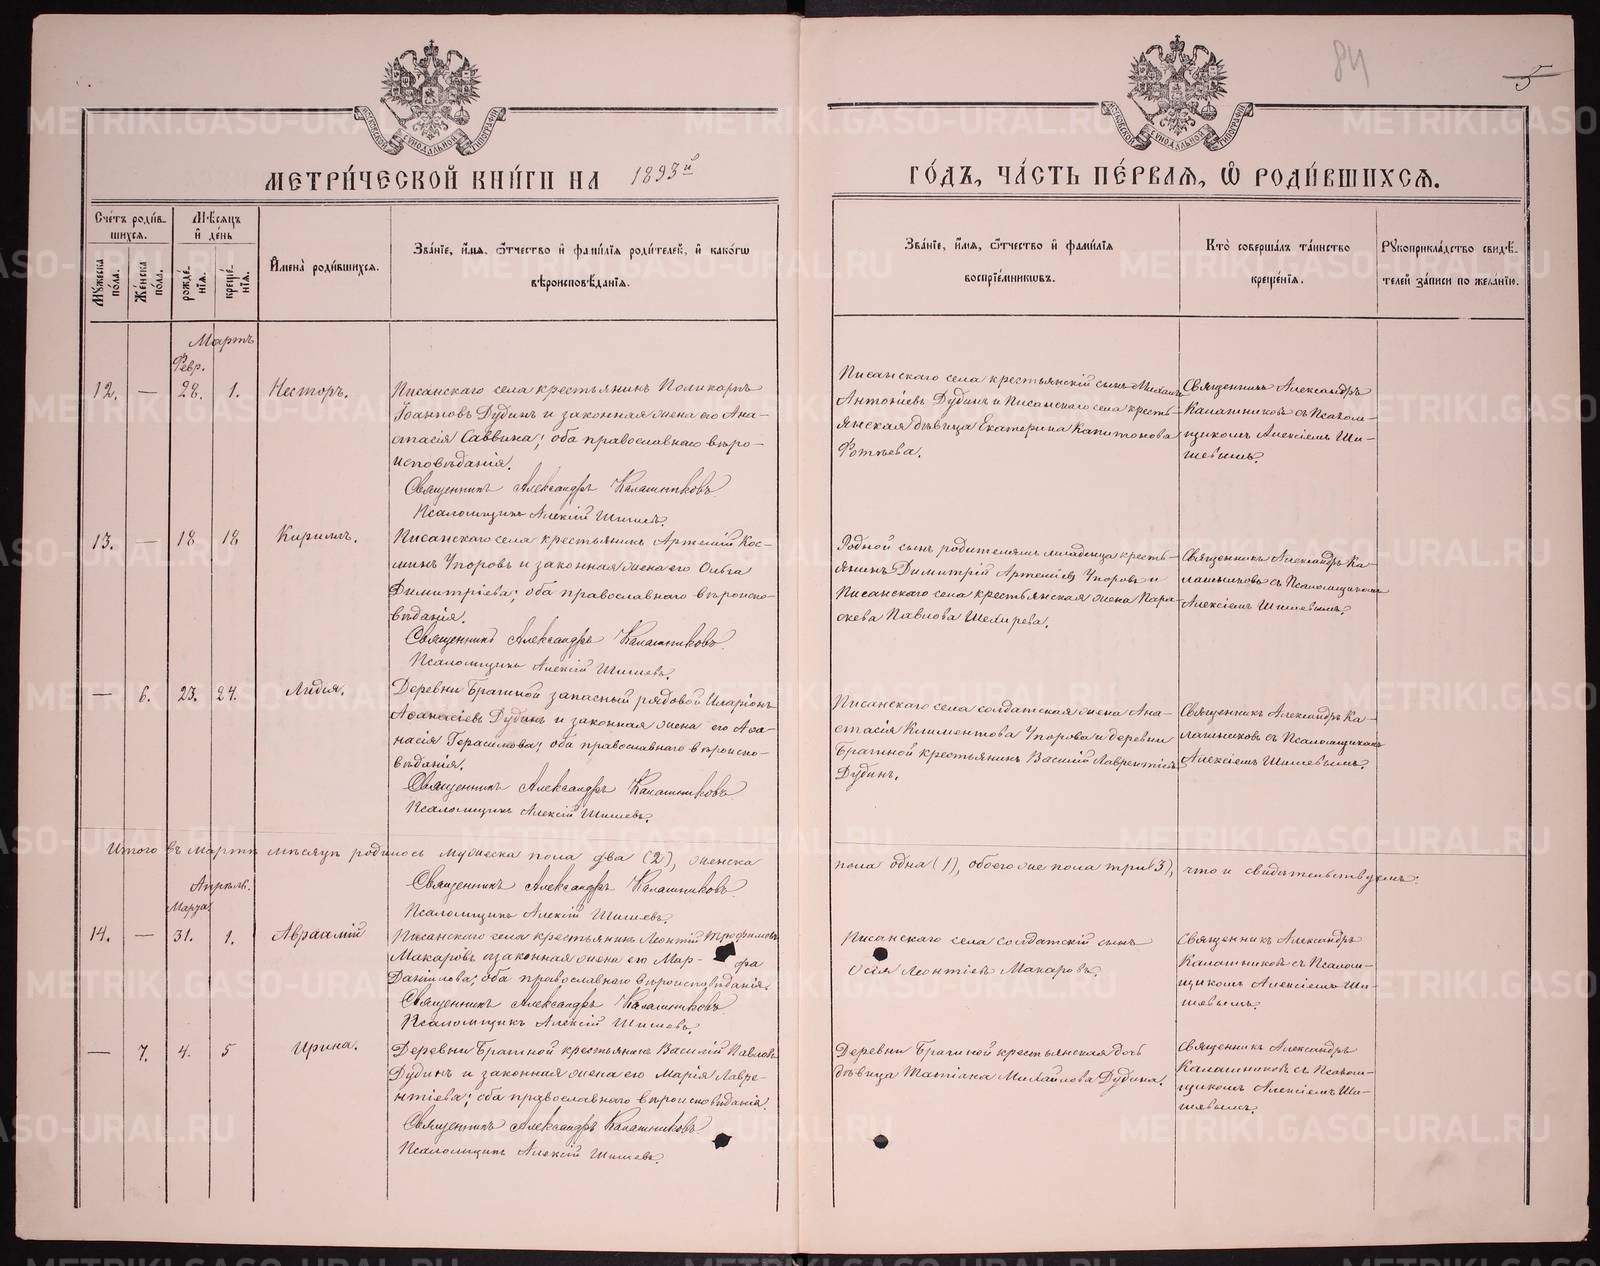 84
5
МОСКОВСКОЙ СУНОДАЛЬНОЙ ТИПОГРАФІИ
МОСКОВСКОЙ СУНОДАЛЬНОЙ ТИПОГРАФІИ
МЕТРИ́ЧЕСКОЙ КНИ́ГИ НА 1893й
ГО́ДЪ, ЧА́СТЬ ПЕ́РВАЯ, Ѡ РОДИ́ВШИХСЯ.
Сче́тъ роди́в-
шихся.
Му́жеска по́ла.
Же́нска по́ла.
Мѣ́сяцъ
и́ де́нь
рожде́-
нїя.
креще́-
нїя.
И҆мена̀ роди́вшихся.
Зва́нїе, и҆́мя, ѻ҆́тчество и҆ фами́лїя роди́телей, и҆ како́гѡ
вѣроисповѣ́данїя.
Зва́нїе, и҆́мя, ѻ҆́тчество и҆ фами́лїя
воспрїе́мниковъ.
Кто̀ соверша́лъ та́инство
креще́нїя.
Рукоприкла́дство свидѣ́-
телей за́писи по жела́нїю.
Мартъ
Февр.
12.
—
28.
1.
Несторъ.
Писанскаго села крестьянинъ Поликарпъ
Іоанновъ Дудинъ и законная жена его Ана-
стасія Саввина; оба православнаго вѣро-
исповѣданія.
Священникъ Александръ Калашниковъ
Псаломщикъ Алексій Шишевъ.
Писанскаго села крестьянскій сынъ Михаилъ
Антоніевъ Дудинъ и Писанскаго села кресть-
янская дѣвица Екатерина Капитонова
Фотѣева.
Священникъ Александръ
Калашниковъ съ Псалом-
щикомъ Алексіемъ Ши-
шевымъ.
13.
—
18
18
Кириллъ.
Писанскаго села крестьянинъ Артемій Кос-
минъ Упоровъ и законная жена его Ольга
Димитріева; оба православнаго вѣроиспо-
вѣданія.
Священникъ Александръ Калашниковъ
Псаломщикъ Алексій Шишевъ.
Родной сынъ родителямъ младенца кресть-
янинъ Димитрій Артеміевъ Упоровъ и
Писанскаго села крестьянская жена Пара-
скева Павлова
Священникъ Александръ Ка-
лашниковъ съ Псаломщикомъ
Алексіемъ Шишевымъ.
—
6.
23.
24.
Лидія.
Деревни Брагиной запасный рядовой Иларіонъ
Аѳанасіевъ Дудинъ и законная жена его Аѳа-
насія Герасимова; оба православнаго вѣроиспо-
вѣданія.
Священникъ Александръ Калашниковъ
Псаломщикъ Алексій Шишевъ.
Писанскаго села солдатская жена Ана-
стасія Климентова Упорова и деревни
Брагиной крестьянинъ Василій Лаврентіевъ
Дудинъ.
Священникъ Александръ Ка-
лашниковъ съ Псаломщикомъ
Алексіемъ Шишевымъ.
Итого въ мартѣ мѣсяцѣ родилось мужеска пола два (2), женска
пола одна (1), обоего же пола три (3), что и свидѣтельствуемъ:
Священникъ Александръ Калашниковъ
Псаломщикъ Алексій Шишевъ.
Апрѣль.
Марта
14.
—
31.
1.
Авраамій
Писанскаго села крестьянинъ Леонтій Трофимовъ
Макаровъ и законная жена его Мар- фа
Даніилова; оба православнаго вѣроисповѣданія.
Священникъ Александръ Калашниковъ
Псаломщикъ Алексій Шишевъ.
Писанскаго села солдатскій сынъ
Осія Леонтіевъ Макаровъ.
Священникъ Александръ
Калашниковъ съ Псалом-
щикомъ Алексіемъ Ши-
шевымъ.
—
7.
4.
5
Ирина.
Деревни Брагиной крестьянинъ Василій Павловъ
Дудинъ и законная жена его Марія Лавре-
нтіева; оба православнаго вѣроисповѣданія.
Священникъ Александръ Калашниковъ
Псаломщикъ Алексій Шишевъ.
Деревни Брагиной крестьянская дочь
дѣвица Татіана Михайлова Дудина.
Священникъ Александръ
Калашниковъ съ Псалом-
щикомъ Алексіемъ Ши-
шевымъ.
METRIKI.GASO-URAL.RU